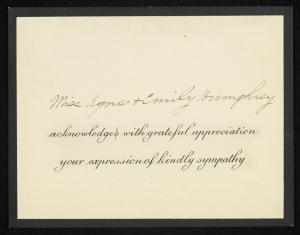 Miss Agnes & Emily Humphrey
acknowledges with grateful appreciation
your expression of kindly sympathy